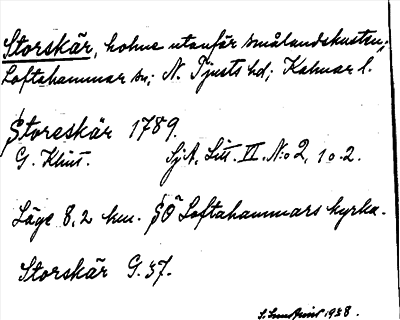 Storskär, holme utanför smålandskusten;
Loftahammar sn; N. Tjusts hd; Kalmar l.
Storeskär 1789.
G. Klint. SjA, Litt. II. N:o 2, 1 o. 2.
Läge 8,2 km. SÖ Loftahammars kyrka.
Storskär G. 37.
1938.